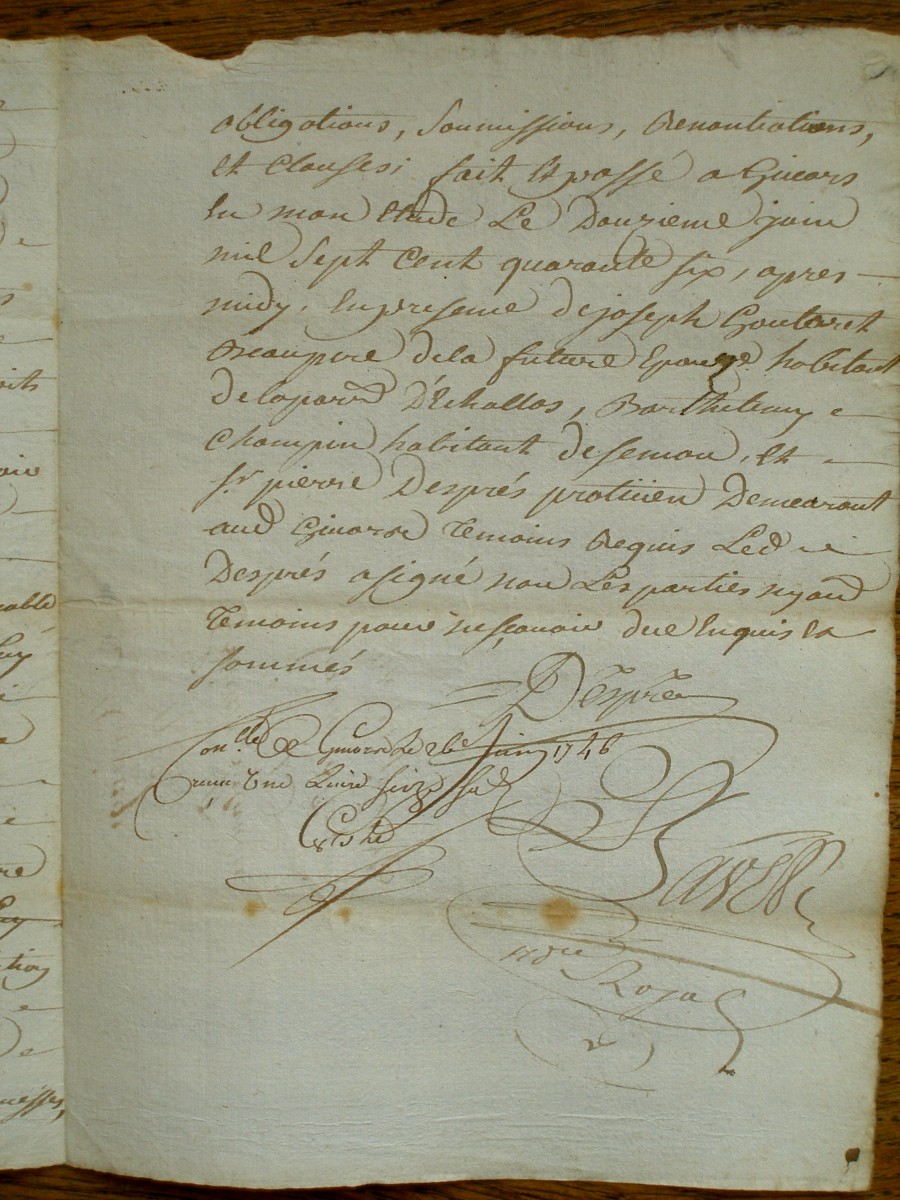 obligations, soumissions, Renontiations,
et Clauses; fait et passé a Givors
En mon Etude Le Douzieme juin
mil sept Cent quarante six, apres
midy, En presence de joseph Goutaret
Beaupere de la future Epouze habitant
de la parr.e D'Echallas, Barthelemy
Champin habitant de Semon, et
Sr pierre Després praticien Demeurant
aud Givors Temoins Requis Led
Després a signé non Les parties ny aud
Temoins pour ne sçavoir de ce Enquis et
sommés
Després
Con.lé a Givors Le 26e Juin 1746
Reçu une Livre seize
Royal